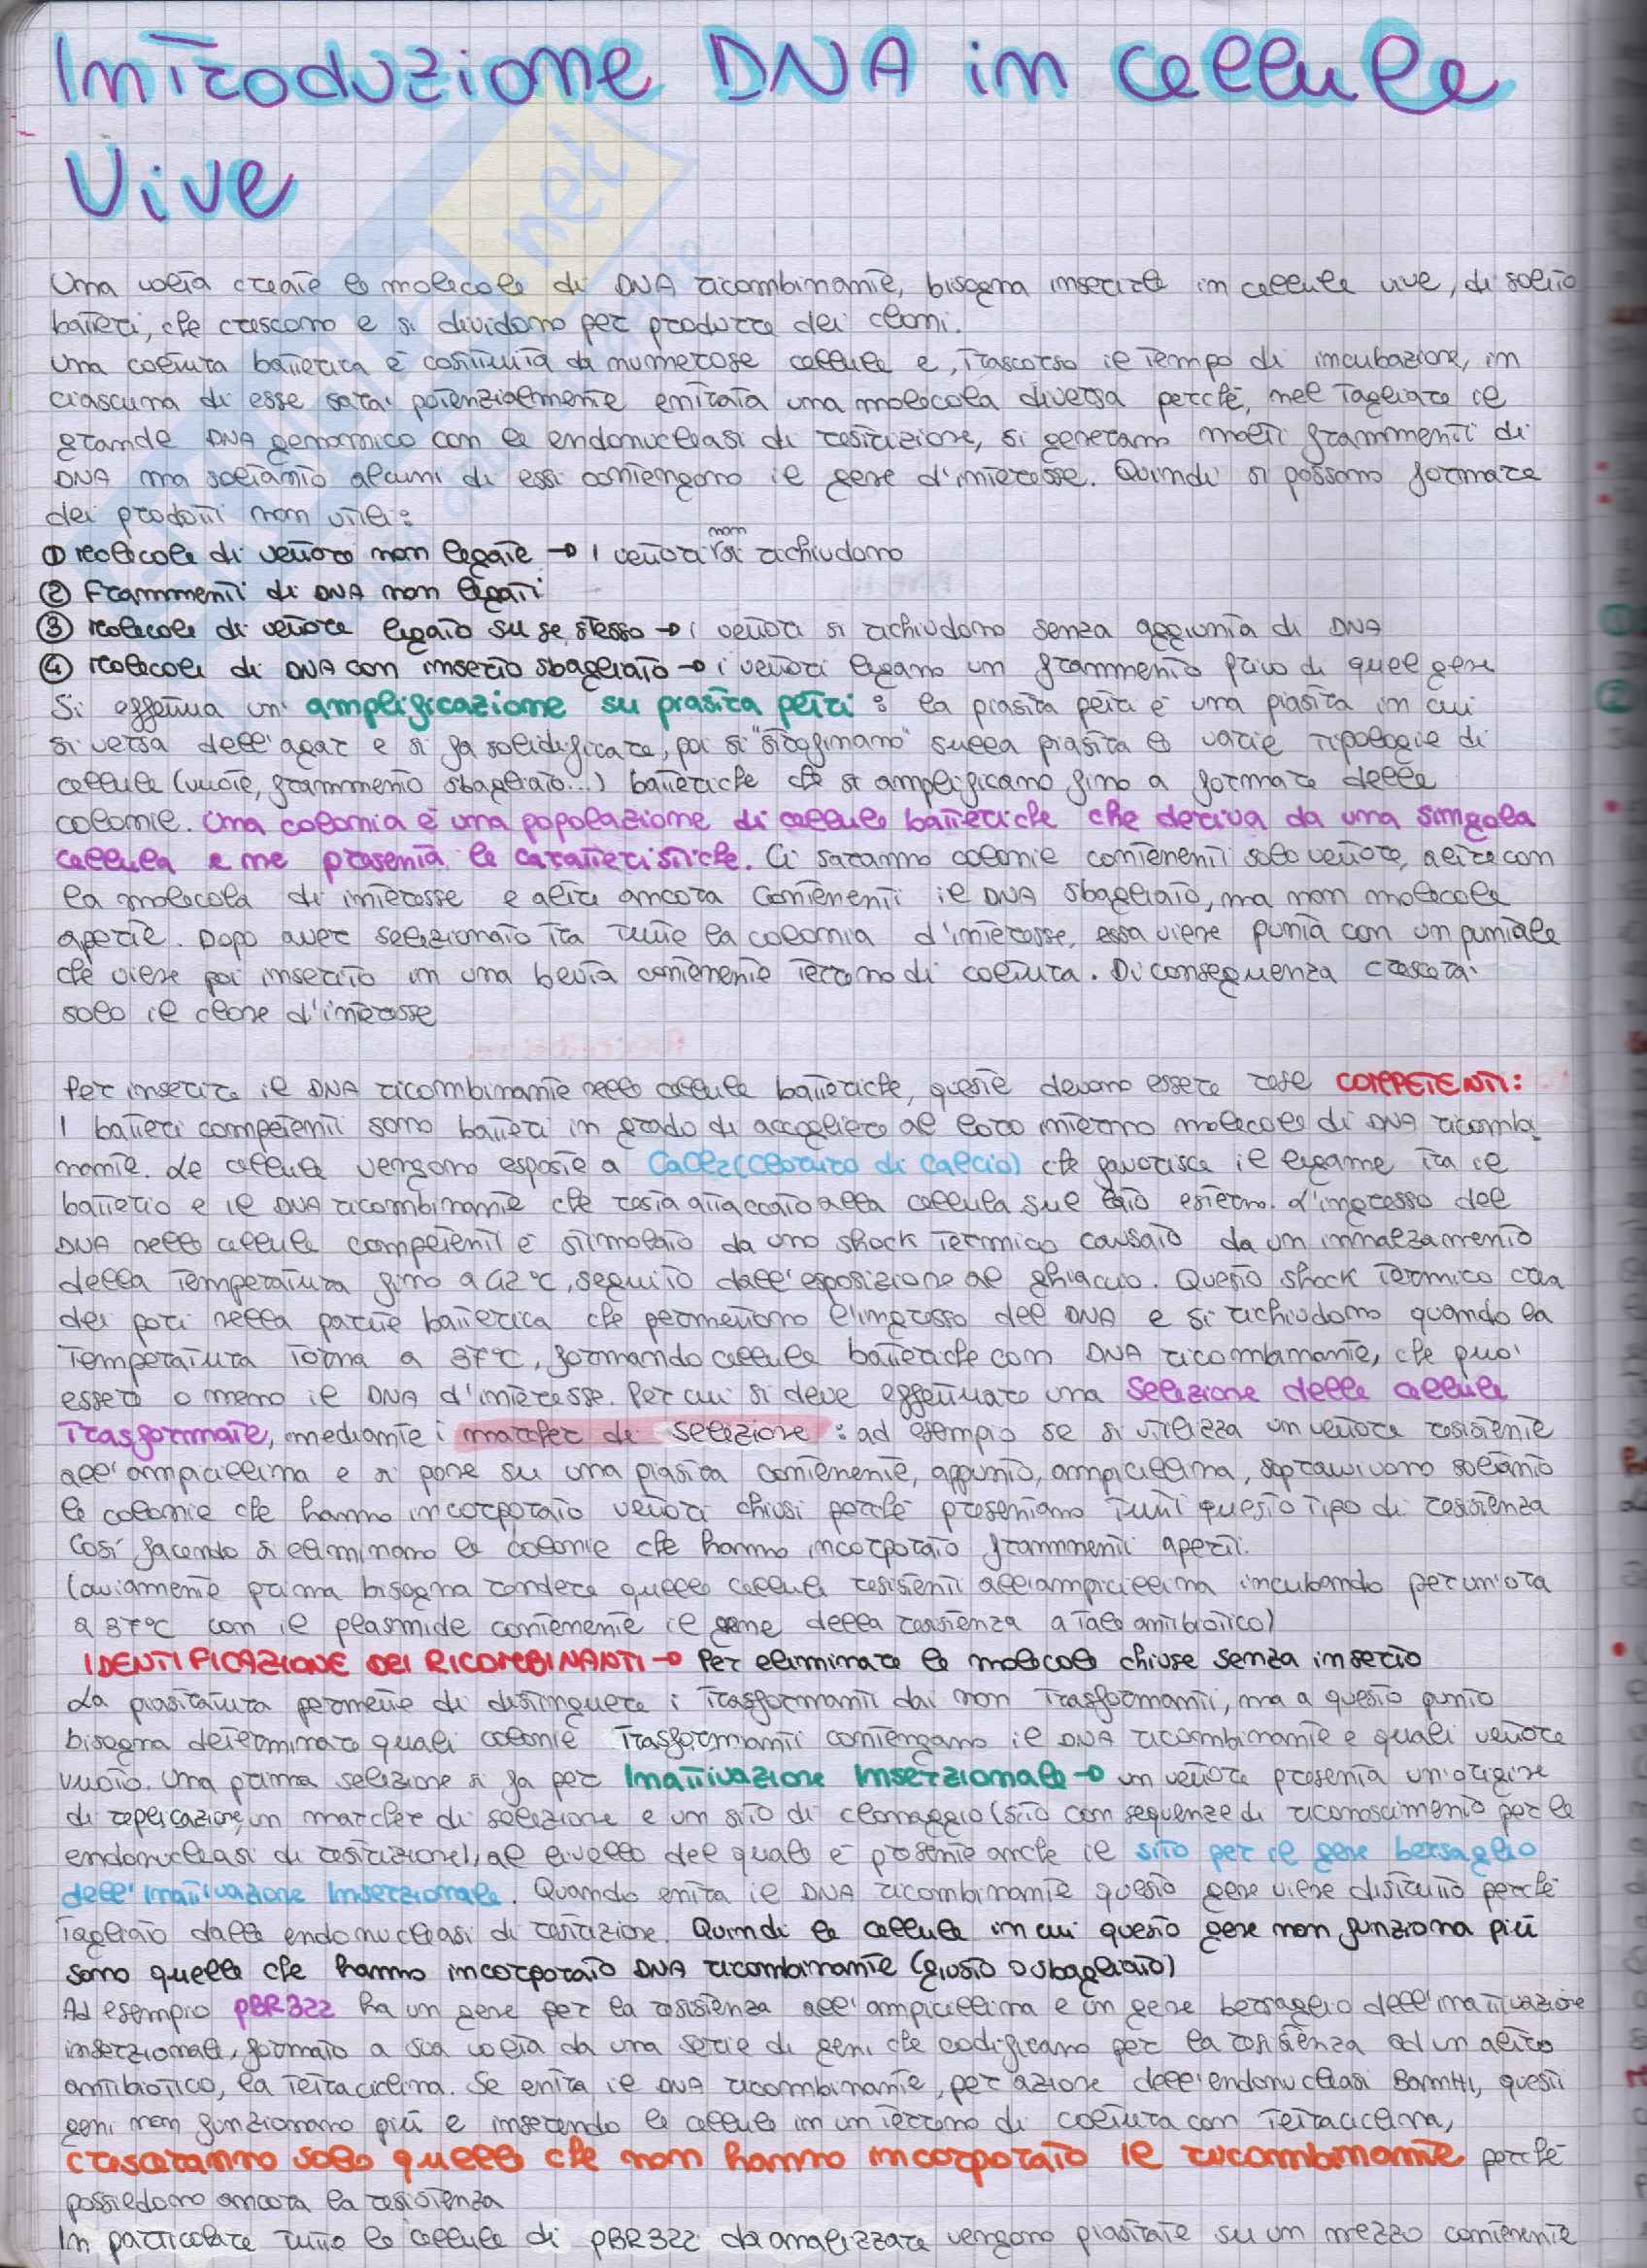 Introduzione DNA in cellule
Vive
Una volta create le molecole di DNA ricombinante, bisogna inserirle in cellule vive, di solito
batteri, che crescono e si dividono per produrre dei cloni.
Una coltura batterica è costituita da numerose cellule e, trascorso il tempo di incubazione, in
ciascuna di esse sarà potenzialmente entrata una molecola diversa perché, nel tagliare il
grande DNA genomico con le endonucleasi di restrizione, si generano molti frammenti di
DNA ma soltanto alcuni di essi contengono il gene d'interesse. Quindi si possono formare
dei prodotti non utili:
① Molecole di vettore non legate → i vettori non si richiudono
② Frammenti di DNA non legati
③ Molecole di vettore legato su se stesso → i vettori si richiudono senza aggiunta di DNA
④ Molecole di DNA con inserto sbagliato → i vettori legano un frammento privo di quel gene
Si effettua un' amplificazione su piastra petri : la piastra petri è una piastra in cui
si versa dell'agar e si fa solidificare, poi si "strofinano" sulla piastra le varie tipologie di
cellule (vuote, frammento sbagliato...) batteriche che si amplificano fino a formare delle
colonie. Una colonia è una popolazione di cellule batteriche che deriva da una singola
cellula e ne presenta le caratteristiche. Ci saranno colonie contenenti solo vettore, altre con
la molecola di interesse e altri ancora contenenti il DNA sbagliato, ma non molecole
aperte. Dopo aver selezionato tra tutte la colonia d'interesse, essa viene punta con un puntale
che viene poi inserito in una beuta contenente terreno di coltura. Di conseguenza crescerà
solo il clone d'interesse
Per inserire il DNA ricombinante nelle cellule batteriche, queste devono essere rese COMPETENTI:
I batteri competenti sono batteri in grado di accogliere al loro interno molecole di DNA ricombi
nante. Le cellule vengono esposte a CaCl2 (cloruro di calcio) che favorisce il legame tra il
batterio e il DNA ricombinante che resta attaccato alla cellula sul lato esterno. L'ingresso del
DNA nelle cellule competenti è stimolato da uno shock termico causato da un innalzamento
della temperatura fino a 42°C, seguito dall'esposizione al ghiaccio. Questo shock termico crea
dei pori nella parete batterica che permettono l'ingresso del DNA e si richiudono quando la
temperatura torna a 37°C, formando cellule batteriche con DNA ricombinante, che può
essere o meno il DNA d'interesse. Per cui si deve effettuare una selezione delle cellule
trasformate, mediante i marcker di selezione : ad esempio se si utilizza un vettore resistente
all'ampicillina e si pone su una piastra contenente, appunto, ampicillina, sopravvivono soltanto
le colonie che hanno incorporato vettori chiusi perché presentano tutti questo tipo di resistenza
Così facendo si eliminano le colonie che hanno incorporato frammenti aperti.
(ovviamente prima bisogna rendere quelle cellule resistenti all'ampicillina incubando per un'ora
a 37°C con il plasmide contenente il gene della resistenza a tale antibiotico)
IDENTIFICAZIONE DEI RICOMBINANTI → Per eliminare le molecole chiuse senza inserto
La piastratura permette di distinguere i trasformanti dai non trasformanti, ma a questo punto
bisogna determinare quali colonie trasformanti contengano il DNA ricombinante e quali vettore
vuoto. Una prima selezione si fa per Inattivazione Inserzionale → un vettore presenta un'origine
di replicazione, un marcker di selezione e un sito di clonaggio (sito con sequenze di riconoscimento per le
endonucleasi di restrizione), al livello del quale è presente anche il sito per il gene bersaglio
dell'Inattivazione Inserzionale. Quando entra il DNA ricombinante questo gene viene distrutto perché
tagliato dalle endonucleasi di restrizione. Quindi le cellule in cui questo gene non funziona più
sono quelle che hanno incorporato DNA ricombinante (giusto o sbagliato)
Ad esempio pBR322 ha un gene per la resistenza all'ampicillina e un gene bersaglio dell'inattivazione
inserzionale, formato a sua volta da una serie di geni che codificano per la resistenza ad un altro
antibiotico, la tetraciclina. Se entra il DNA ricombinante, per azione dell'endonucleasi BamHI, questi
geni non funzionano più e inserendo le cellule in un terreno di coltura con tetraciclina,
cresceranno solo quelle che non hanno incorporato il ricombinante perché
possiedono ancora la resistenza
In particolare tutte le cellule di pBR322 da analizzare vengono piastrate su un mezzo contenente